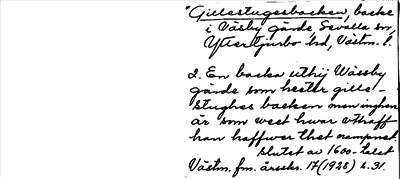 "Gillestugesbacken, backe
i Väsby gärde, Sevalla sn,
Yttertjurbo hd, Västm. l.
2. En backa uthij Wässby
gärde som heeter gille-
stughes backen men inghen
är som weet hwar uthaff
han haffwer thet nampnet.
slutet av 1600-talet
Västm. fm. årsskr. 17 (1928) s. 31.